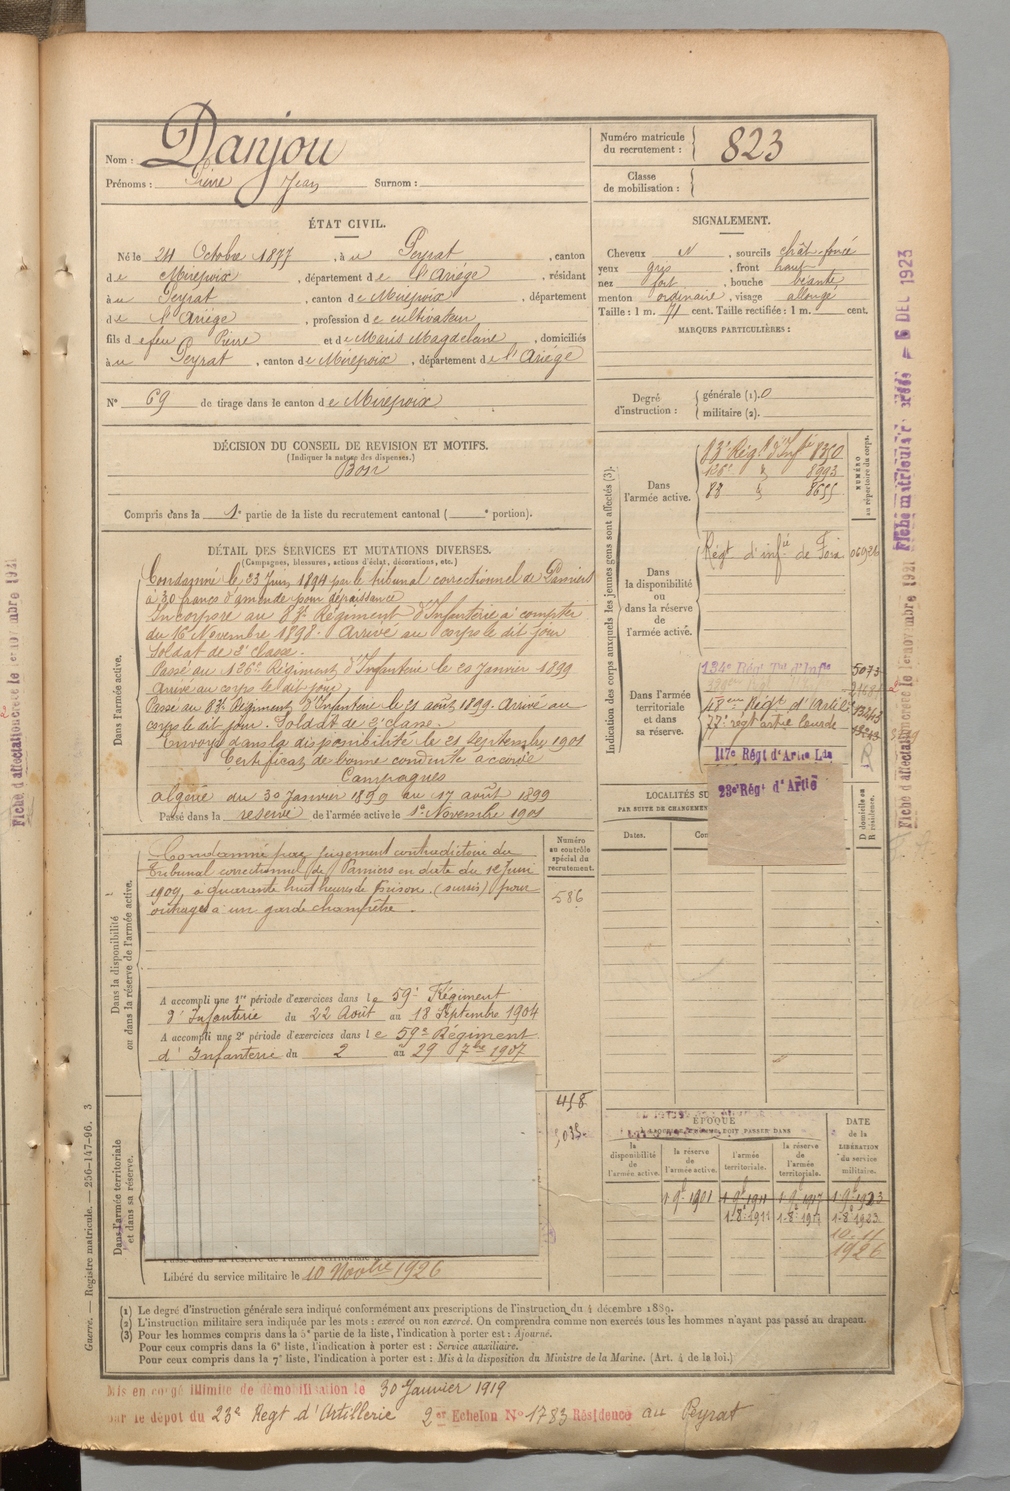 Nom : Danjou
Prénoms : Pierre Jean Surnom :
Numéro matricule du recrutement : 823
Classe de mobilisation :
ÉTAT CIVIL.
Né le 24 Octobre 1877, à u Peyrat, canton
de Mirepoix, département de l'Ariège, résidant
à u Peyrat, canton de Mirepoix, département
de l'Ariège, profession de cultivateur
fils de feu Pierre et de Marie Magdelaine, domiciliés
à u Peyrat, canton de Mirepoix, département de l'Ariège
N° 69 de tirage dans le canton de Mirepoix
SIGNALEMENT.
Cheveux N, sourcils chât-foncé
yeux gris, front haut
nez fort, bouche béante
menton ordinaire, visage allongé
Taille : 1 m. 71 cent. Taille rectifiée : 1 m. cent.
MARQUES PARTICULIÈRES :
Degré d'instruction : générale (1). 0
militaire (2).
DÉCISION DU CONSEIL DE REVISION ET MOTIFS.
(Indiquer la nature des dispenses.)
Bon
Compris dans la 1e partie de la liste du recrutement cantonal ( e portion).
DÉTAIL DES SERVICES ET MUTATIONS DIVERSES.
(Campagnes, blessures, actions d'éclat, décorations, etc.)
Dans l'armée active.
Condamné le 23 Juin 1894 par le tribunal correctionnel de Pamiers
à 30 francs d'amende pour dépaissance
Incorporé au 83e Régiment d'Infanterie à compter
du 16 Novembre 1898. Arrivé au corps le dit jour
Soldat de 2e classe.
Passé au 126e Régiment d'Infanterie le 20 Janvier 1899
Arrivé au corps le dit jour
Passé au 83e Régiment d'Infanterie le 21 août 1899. Arrivé au
corps le dit jour. Soldat de 2e classe.
Envoyé dans la disponibilité le 21 Septembre 1901
Certificat de bonne conduite accordé
Campagnes
Algérie du 30 Janvier 1899 au 17 août 1899
Passé dans la réserve de l'armée active le 1er Novembre 1901
Indication des corps auxquels les jeunes gens sont affectés (3).
Dans l'armée active.
83e Régt d'Infie 8350
126e d° 8993
83 d° 8655
NUMÉRO au répertoire du corps.
Dans la disponibilité ou dans la réserve de l'armée active.
Régt d'infie de Foix 06926
Dans l'armée territoriale et dans sa réserve.
134e Régt Tal d'Infie 5073
18eme Régt d'Artie
77e régt artie lourde
117e Régt d'Artie Lde
23e Régt d'Artie
LOCALITÉS SU
PAR SUITE DE CHANGEMEN
Dates.
D domicile ou R résidence.
Dans la disponibilité ou dans la réserve de l'armée active.
Condamné par jugement contradictoire du
Tribunal correctionnel de Pamiers en date du 12 Juin
1909, à quarante huit heures de prison (sursis) pour
outrages à un garde champêtre.
Numéro au contrôle spécial du recrutement.
586
A accompli une 1re période d'exercices dans le 59e Régiment
d'Infanterie du 22 Août au 18 Septembre 1904
A accompli une 2e période d'exercices dans le 59e Régiment
d'Infanterie du 2 au 29 7bre 1907
Dans l'armée territoriale et dans sa réserve.
458
ÉPOQUE
DATE de la LIBÉRATION du service militaire.
la disponibilité de l'armée active.
la réserve de l'armée active.
l'armée territoriale.
la réserve de l'armée territoriale.
1 9e 1901 1 9e 1911 1 9e 1917 1 9e 1923
1-8e 1911 1-8e 1917 1-8e 1923
10-11
1926
Libéré du service militaire le 10 Novbre 1926
(1) Le degré d'instruction générale sera indiqué conformément aux prescriptions de l'instruction du 4 décembre 1889.
(2) L'instruction militaire sera indiquée par les mots : exercé ou non exercé. On comprendra comme non exercés tous les hommes n'ayant pas passé au drapeau.
(3) Pour les hommes compris dans la 5e partie de la liste, l'indication à porter est : Ajourné.
Pour ceux compris dans la 6e liste, l'indication à porter est : Service auxiliaire.
Pour ceux compris dans la 7e liste, l'indication à porter est : Mis à la disposition du Ministre de la Marine. (Art. 4 de la loi.)
Mis en congé illimité de démobilisation le 30 Janvier 1919
par le dépôt du 23e Regt d'Artillerie 2er Echelon N° 1783 Résidence au Peyrat
Guerre. — Registre matricule. — 256-147-96. 3
Fiche d'affectation créée le 1er novembre 1921